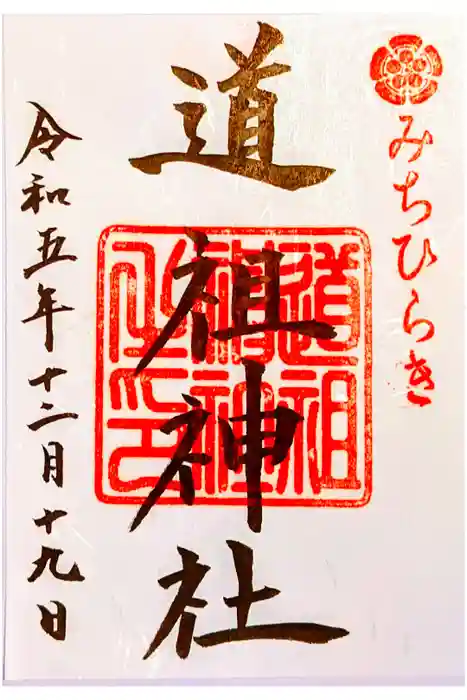 みちひらき
道祖神社
道祖神社之印
令和五年十二月十九日